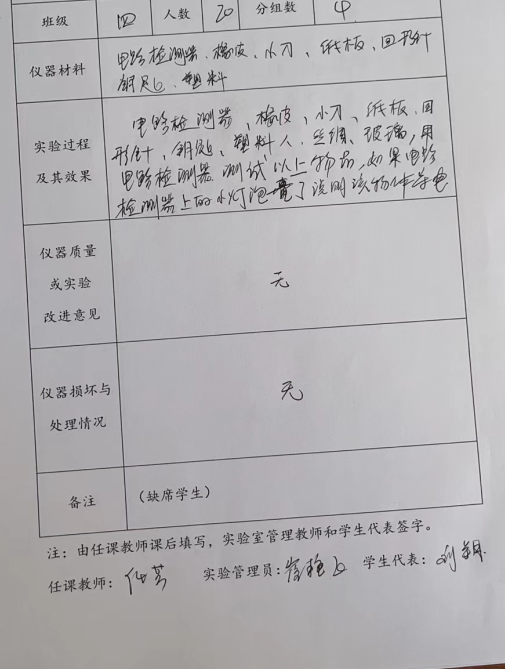 班级 四 人数 20 分组数 4
仪器材料 电路检测器、橡皮、小刀、纸板、回形针
钥匙、塑料
实验过程
及其效果
电路检测器、橡皮、小刀、纸板、回
形针、钥匙、塑料、丝绸、玻璃,用
电路检测器测试以上物品,如果电路
检测器上的小灯泡亮了说明该物体导电
仪器质量
或实验
改进意见
无
仪器损坏与
处理情况
无
备注 (缺席学生)
注:由任课教师课后填写,实验室管理教师和学生代表签字。
任课教师: 实验管理员: 学生代表: